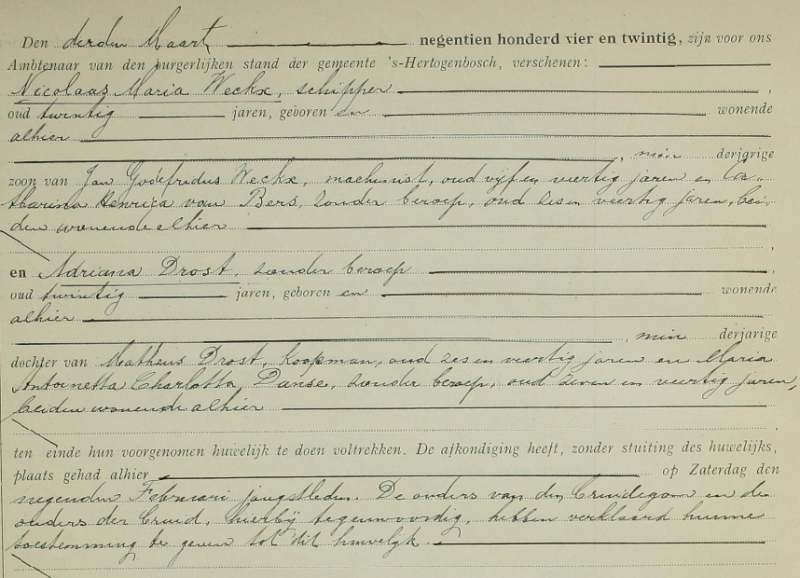 Den derden Maart negentien honderd vier en twintig, zijn voor ons
Ambtenaar van den burgerlijken stand der gemeente 's-Hertogenbosch, verschenen:
Nicolaas Maria Weckx, schipper ,
oud twintig jaren, geboren en wonende
alhier
, min derjarige
zoon van Jan Godefridus Weckx, machinist, oud vijf en veertig jaren en Ca-
tharina Henrica van Bers, zonder beroep, oud zes en veertig jaren, bei-
den wonende alhier
,
en Adriana Drost, zonder beroep ,
oud twintig jaren, geboren en wonende
alhier
, min derjarige
dochter van Matheus Drost, koopman, oud zes en veertig jaren en Maria
Antoinetta Charlotta Danse, zonder beroep, oud zeven en veertig jaren,
beiden wonende alhier
,
ten einde hun voorgenomen huwelijk te doen voltrekken. De afkondiging heeft, zonder stuiting des huwelijks,
plaats gehad alhier op Zaterdag den
negenden Februari jongstleden. De ouders van den Bruidegom en de
ouders der Bruid, hierbij tegenwoordig, hebben verklaard hunne
toestemming te geven tot dit huwelijk.